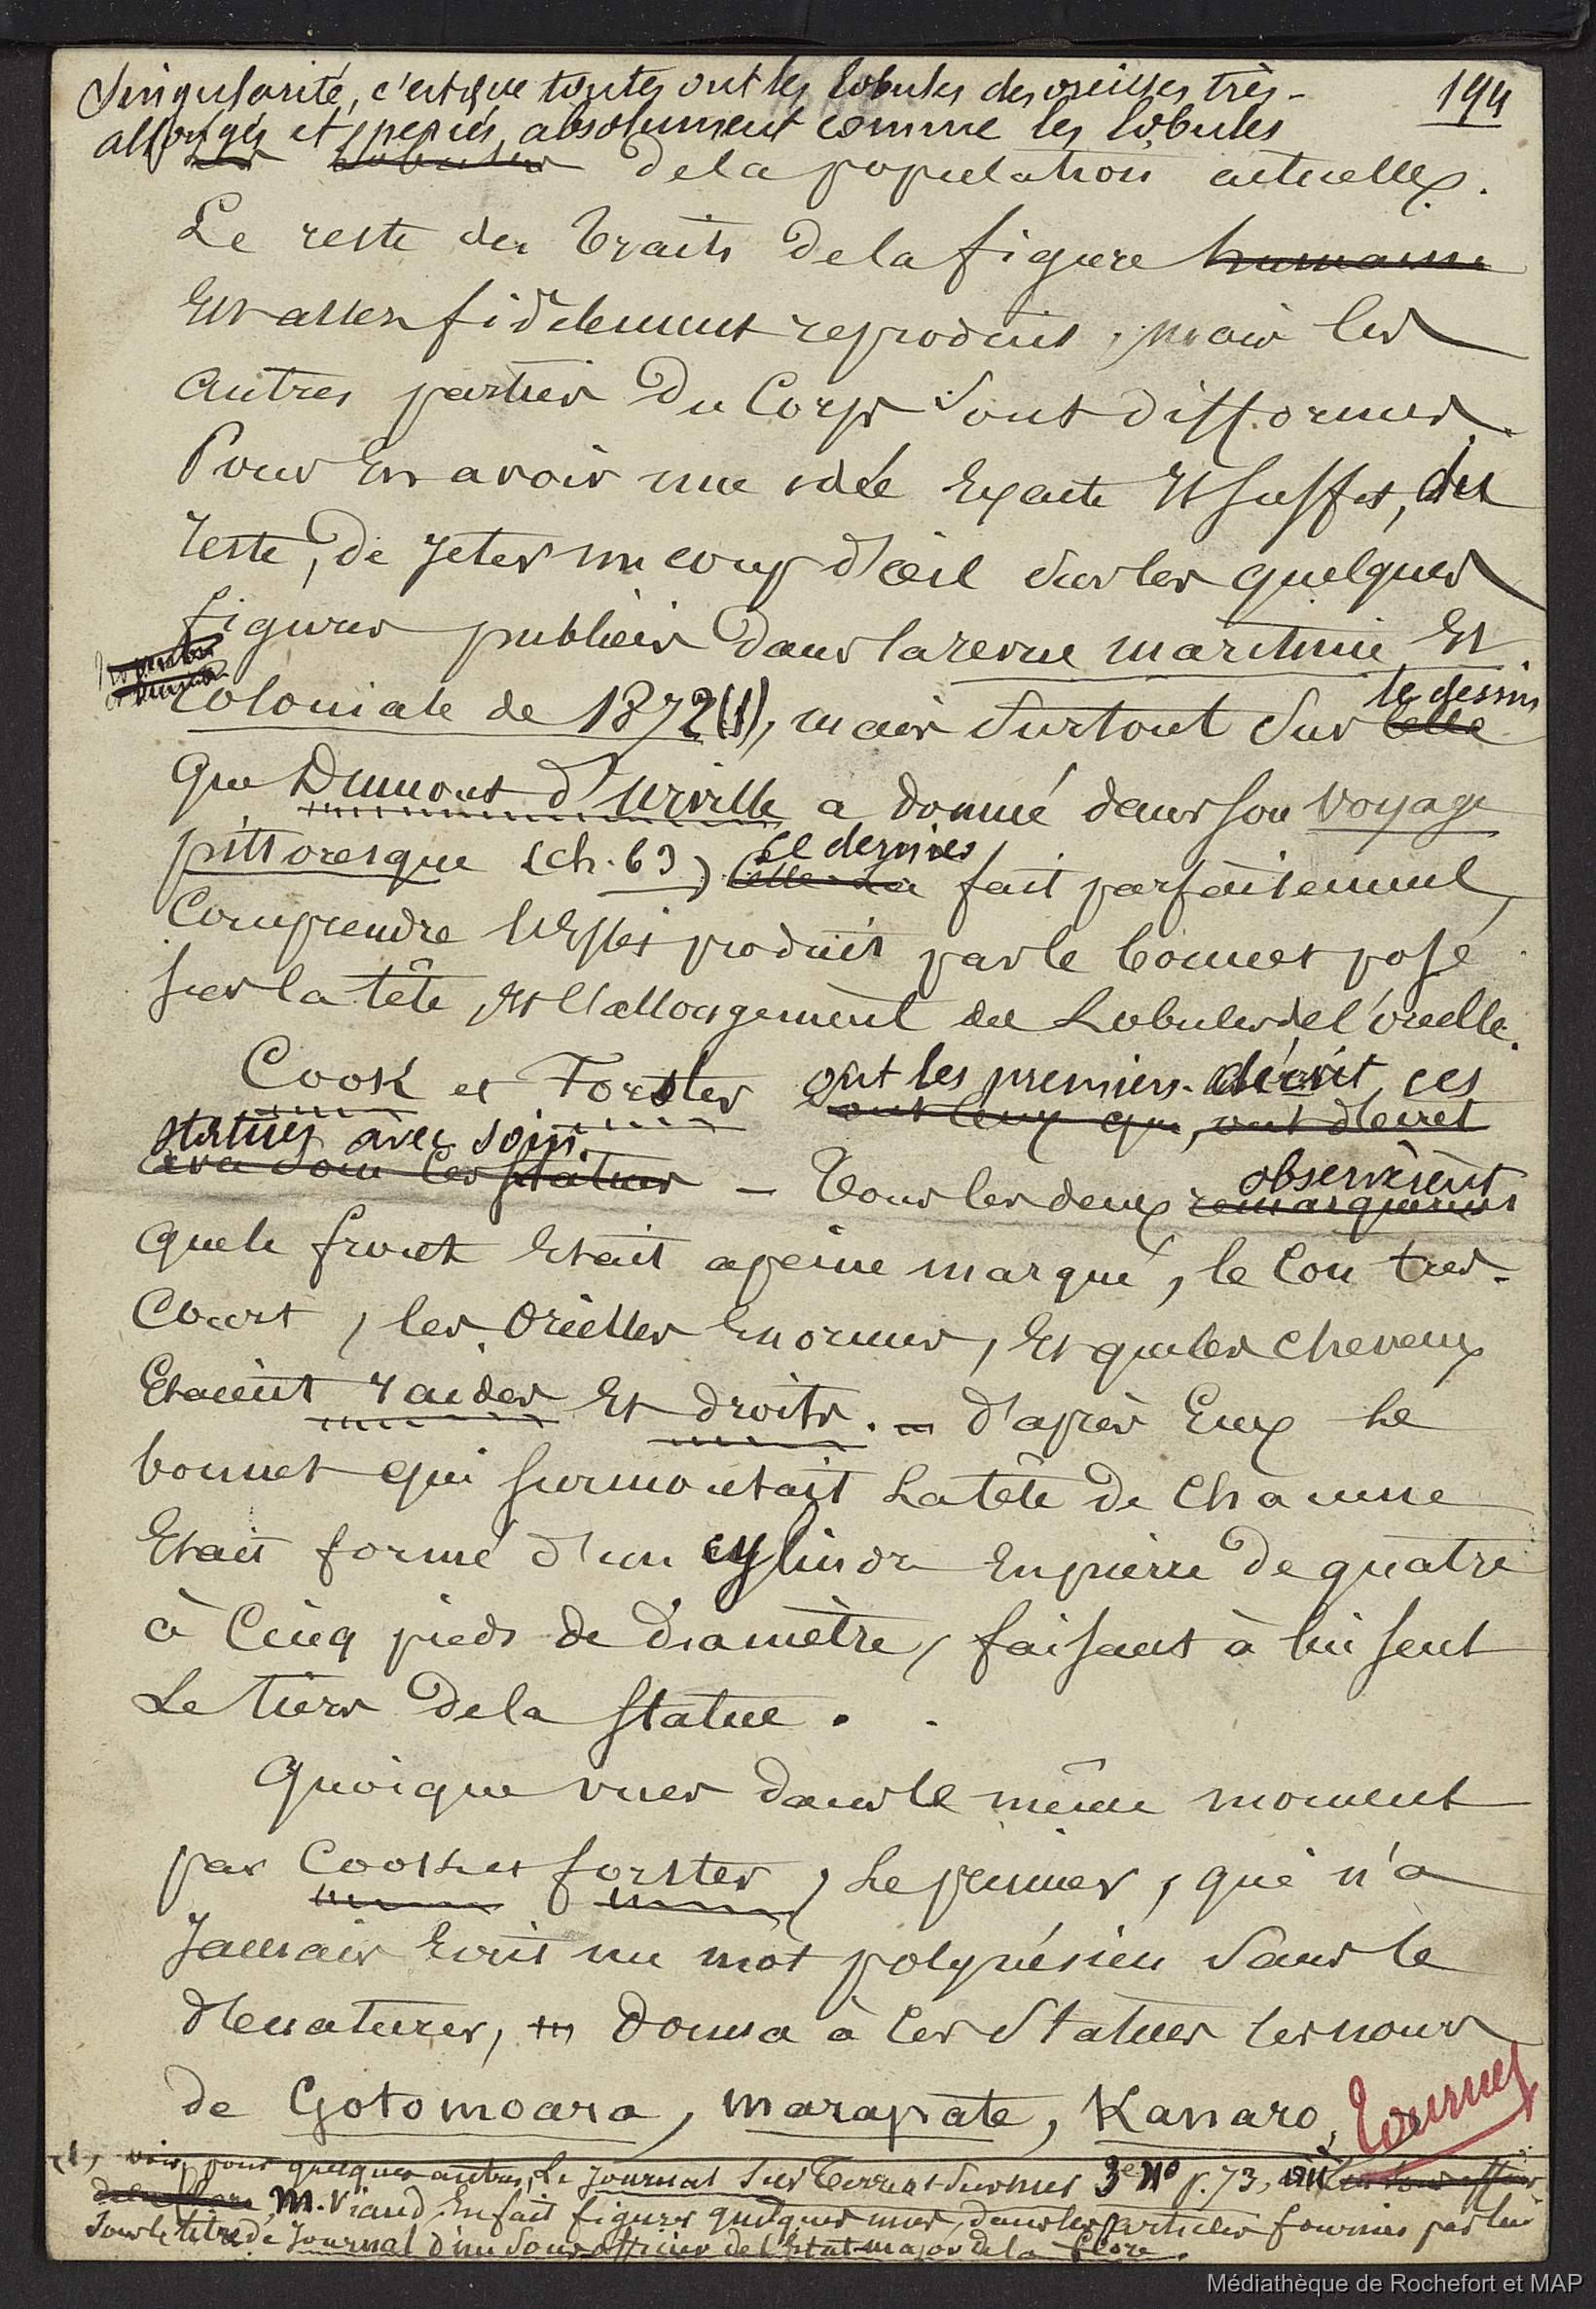 194
Singularité, c'est que toutes ont les lobules des oreilles très-
allongés et percés, absolument comme les lobules
les lobules de la population actuelle.
Le reste des traits de la figure humaine
est assez fidèlement reproduit, mais les
autres parties du corps sont difformes.
Pour en avoir une idée exacte il suffit, du
reste, de jeter un coup d'œil sur les quelques
figures publiées dans la revue maritime et
coloniale de 1872 (1), mais surtout sur celle le dessin
que Dumont d'Urville a donné dans son voyage
pittoresque (ch. 63) Celle-la Ce dernier fait parfaitement
comprendre l'effet produit par le bonnet posé
sur la tête, et l'allongement des lobules de l'oreille.
Cook et Forster ont les premiers décrit ces
sont ceux qui ont décrit
statues avec soin.
avec soin ces statues — Tous les deux remarquèrent observèrent
que le front était à peine marqué, le cou très-
court, les oreilles énormes, et que les cheveux
étaient raides et droits. — d'après eux le
bonnet qui surmontait la tête de chacune
était formé d'un cylindre en pierre de quatre
à cinq pieds de diamètre, faisant à lui seul
le tiers de la statue.
Quoique vues dans le même moment
par Cook et Forster, le premier, qui n'a
jamais écrit un mot polynésien sans le
dénaturer, donna à ces statues les noms
de Gotomoara, marapate, Kanaro,
Tournez
(1) voir, pour quelques autres, le Journal Sur Terre et Sur mer 3e No p. 73,
M. Viaud en fait figurer quelques unes, dans les articles fournis par lui
sous le titre de Journal d'un sous-officier de l'Etat-major de la Flore.
Médiathèque de Rochefort et MAP